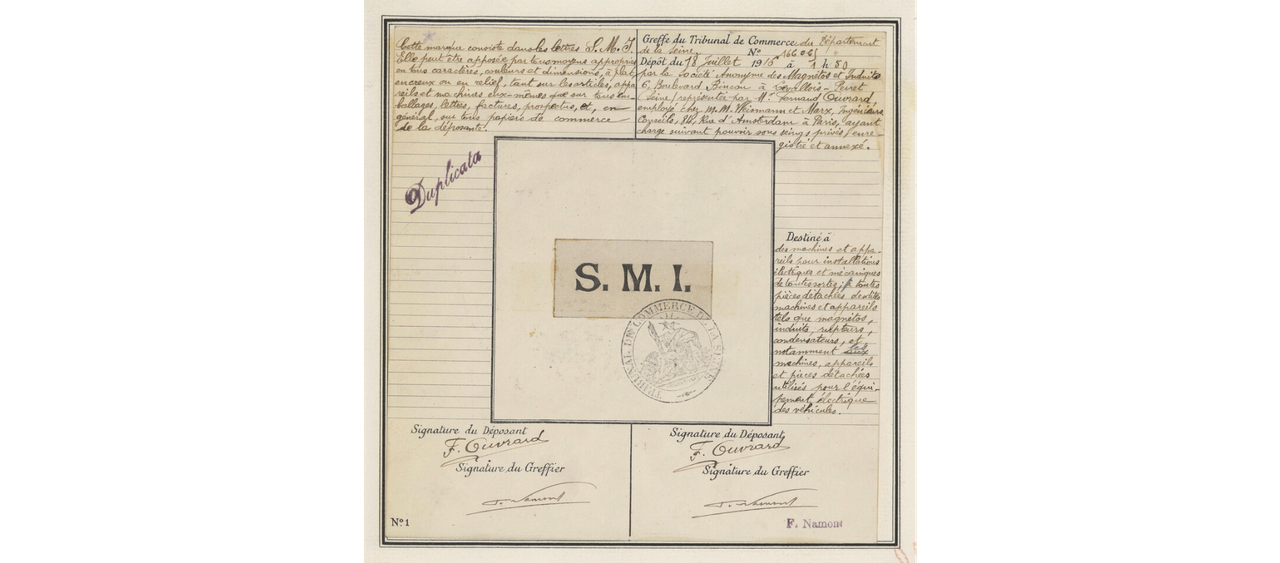 Cette marque consiste dans les lettres S. M. I.
Elle peut être apposée par tous moyens appropriés
en tous caractères, couleurs et dimensions, à plat,
en creux ou en relief, tant sur les articles, appa
reils et machines eux-mêmes que sur tous em-
ballages, lettres, factures, prospectus, et, en
général, sur tous papiers de commerce
de la déposante.
Duplicata
Greffe du Tribunal de Commerce du Département
de la Seine. No
Dépôt du 18 Juillet 1916 à 1 h 50
par la Société Anonyme des Magnétos et Induits
6, Boulevard Bineau à Levallois-Perret
(Seine) représentée par Mr. Fernand Ouvrard,
employé chez M.M. Weismann et Marx, Ingénieurs
Conseils, 84, Rue d'Amsterdam à Paris, ayant
charge suivant pouvoir sous seings privés, enre
gistré et annexé.
S. M. I.
TRIBUNAL DE COMMERCE DE LA SEINE
Destiné à
des machines et appa-
reils pour installations
électriques et mécaniques
de toutes sortes, toutes
pièces détachées desdites
machines et appareils
tels que magnétos,
induits, rupteurs,
condensateurs, et
notamment
machines, appareils
et pièces détachées
utilisés pour l'équi-
pement électrique
des véhicules.
Signature du Déposant
F. Ouvrard
Signature du Greffier
F. Namont
No 1
Signature du Déposant
F. Ouvrard
Signature du Greffier
F. Namont
F. Namont